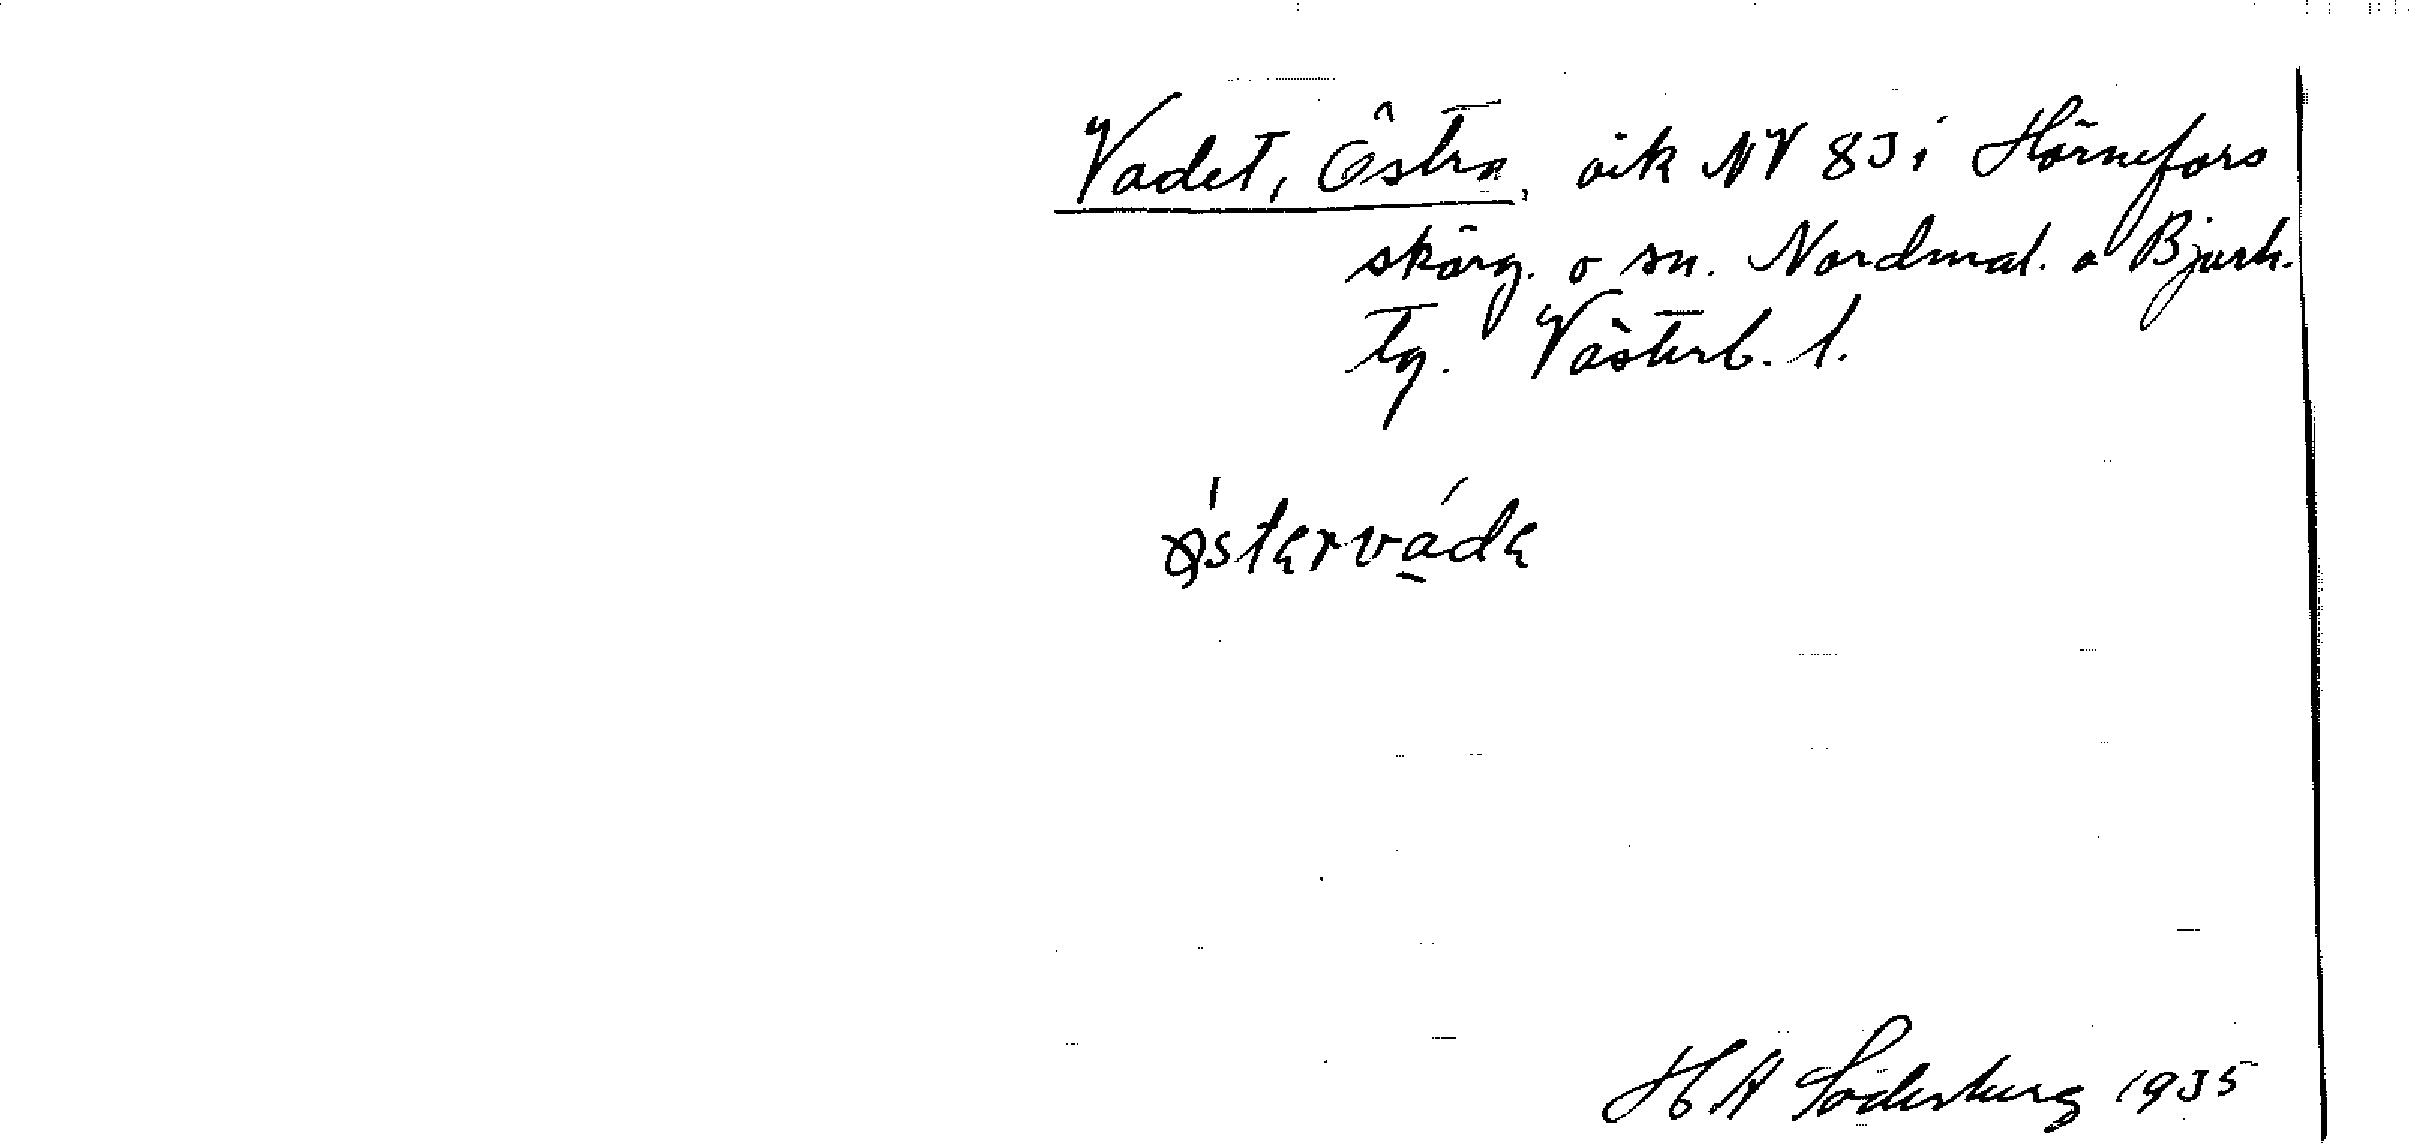 Vadet, Östra, vik NV 83 i Hörnefors
skärg. o sn. Nordmal. o Bjurh.
tg. Västerb. l.
H A Söderberg 1935